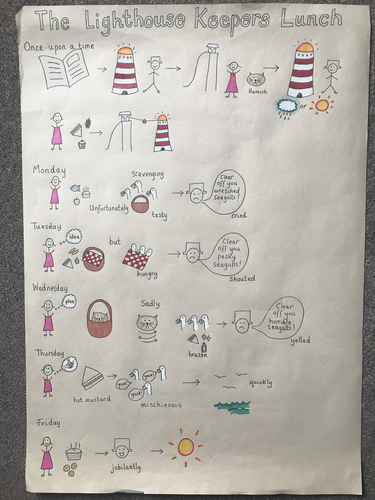 The Lighthouse Keepers Lunch
Once upon a time
Hamish
or
Monday
Scavenging
Unfortunately
tasty
Clear
off you
wretched
seagulls!
cried
Tuesday
idea
but
hungry
Clear
off you
pesky
seagulls!
shouted
Wednesday
plan
Sadly
brazen
Clear
off you
horrible
seagulls!
yelled
Thursday
hot mustard
yuk!
yuk!
yuk!
mischievous
quickly
Friday
jubilantly